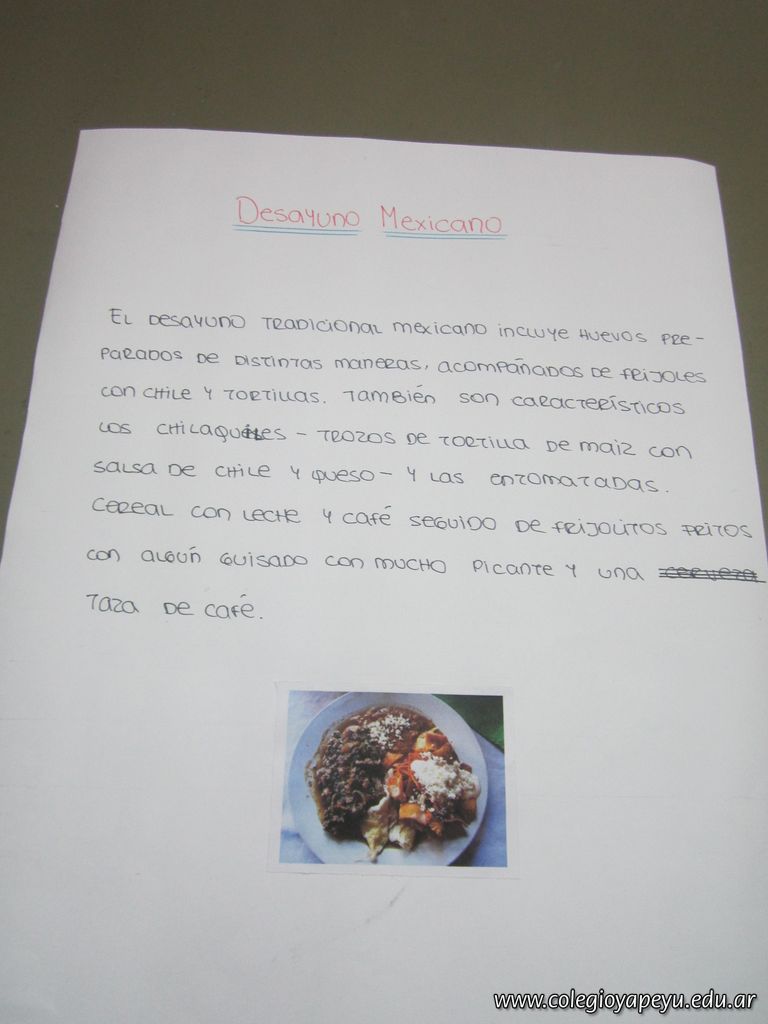 Desayuno Mexicano
El desayuno tradicional mexicano incluye huevos pre-
parados de distintas maneras, acompañados de frijoles
con chile y tortillas. También son característicos
los chilaquiles - trozos de tortilla de maiz con
salsa de chile y queso - y las entomatadas.
Cereal con leche y café seguido de frijolitos fritos
con algún guisado con mucho picante y una cerveza
taza de café.
www.colegioyapeyu.edu.ar